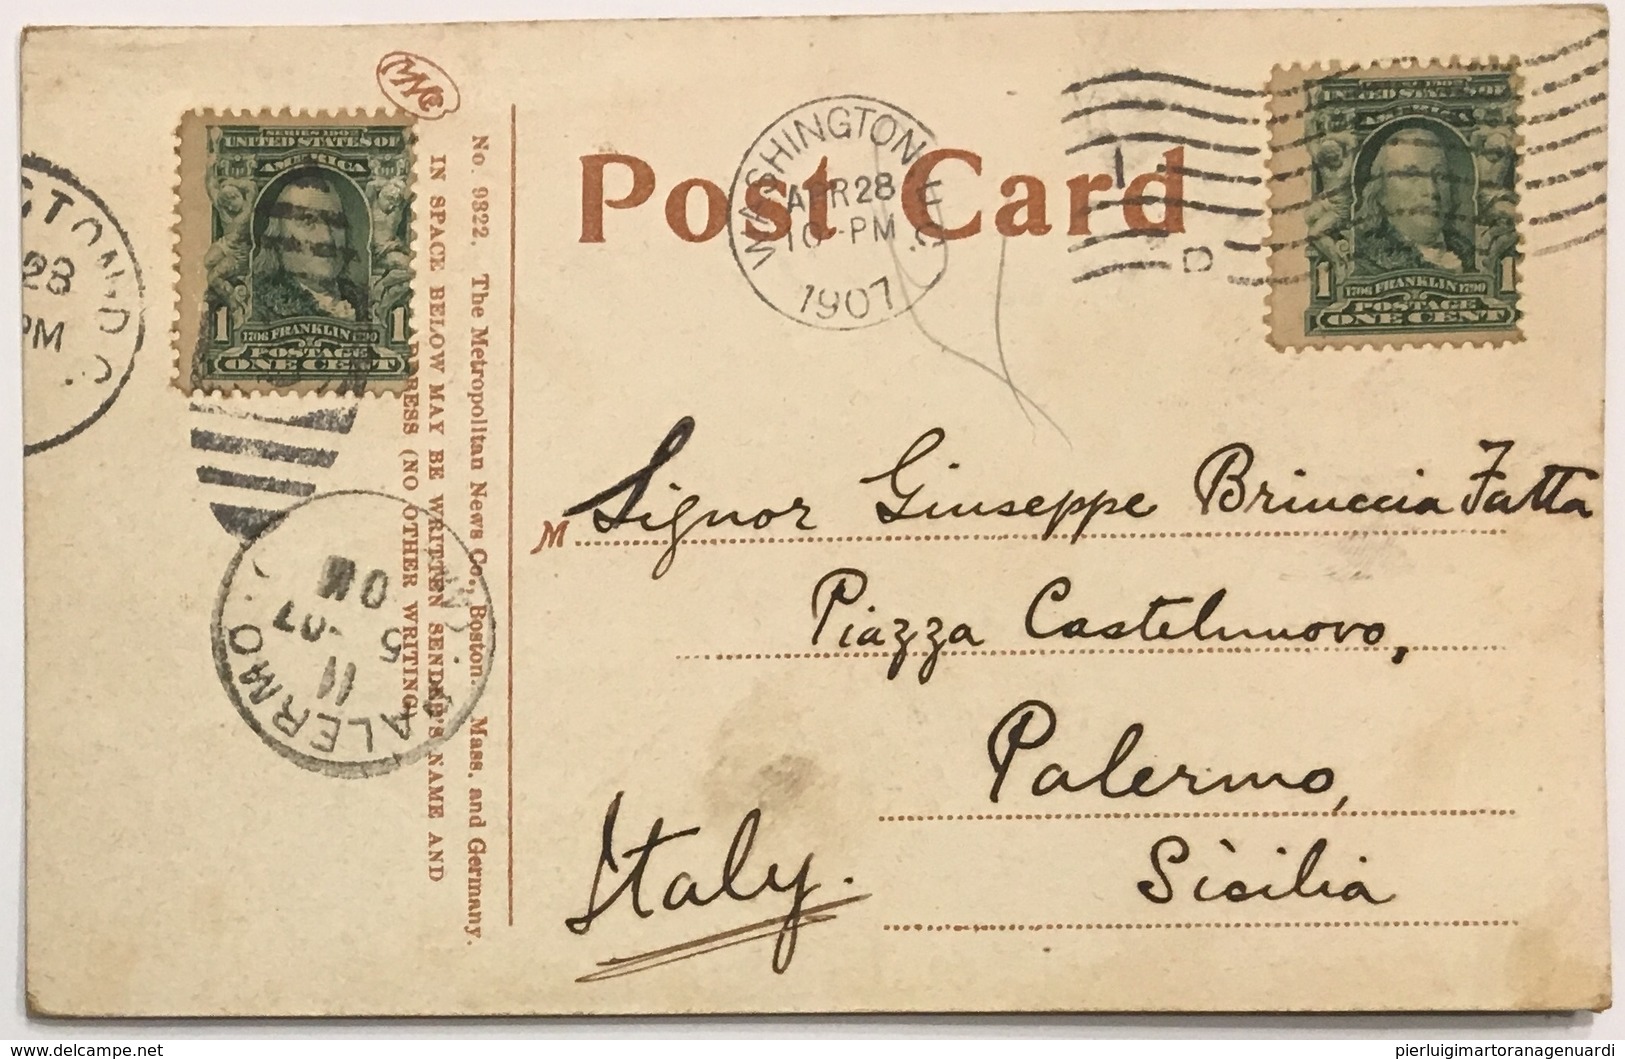 Post Card
WASHINGTON D.C.
APR 28
10-PM
1907
1
D
SERIES 1902
UNITED STATES OF
AMERICA
1 1
1706 FRANKLIN 1790
POSTAGE
ONE CENT
UNITED STATES OF
AMERICA
1 1
1706 FRANKLIN 1790
POSTAGE
ONE CENT
GTON D.C.
28
PM
No. 9322. The Metropolitan News Co., Boston. Mass. and Germany.
IN SPACE BELOW MAY BE WRITTEN SENDER'S NAME AND
ADDRESS (NO OTHER WRITING)
PALERMO
11
5
07
M Signor Giuseppe Briuccia Fatta
Piazza Castelnuovo,
Palermo,
Sicilia
Italy.
delcampe.net
pierluigimartoranagenuardi